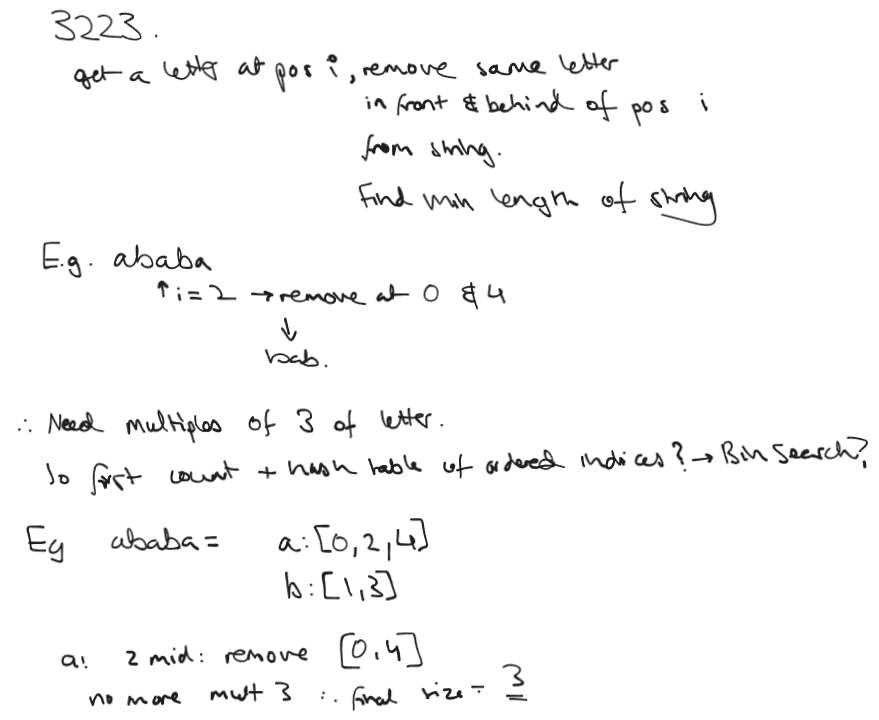 3223.
get a letter at pos i, remove same letter
in front & behind of pos i
from string.
Find min length of string
E.g. ababa
↑ i = 2 → remove at 0 & 4
↓
bab.
∴ Need multiples of 3 of letter.
So first count + hash table of ordered indices? → Bin Search?
Eg ababa = a: [0, 2, 4]
b: [1, 3]
a: 2 mid: remove [0, 4]
no more mult 3 ∴ final size = 3